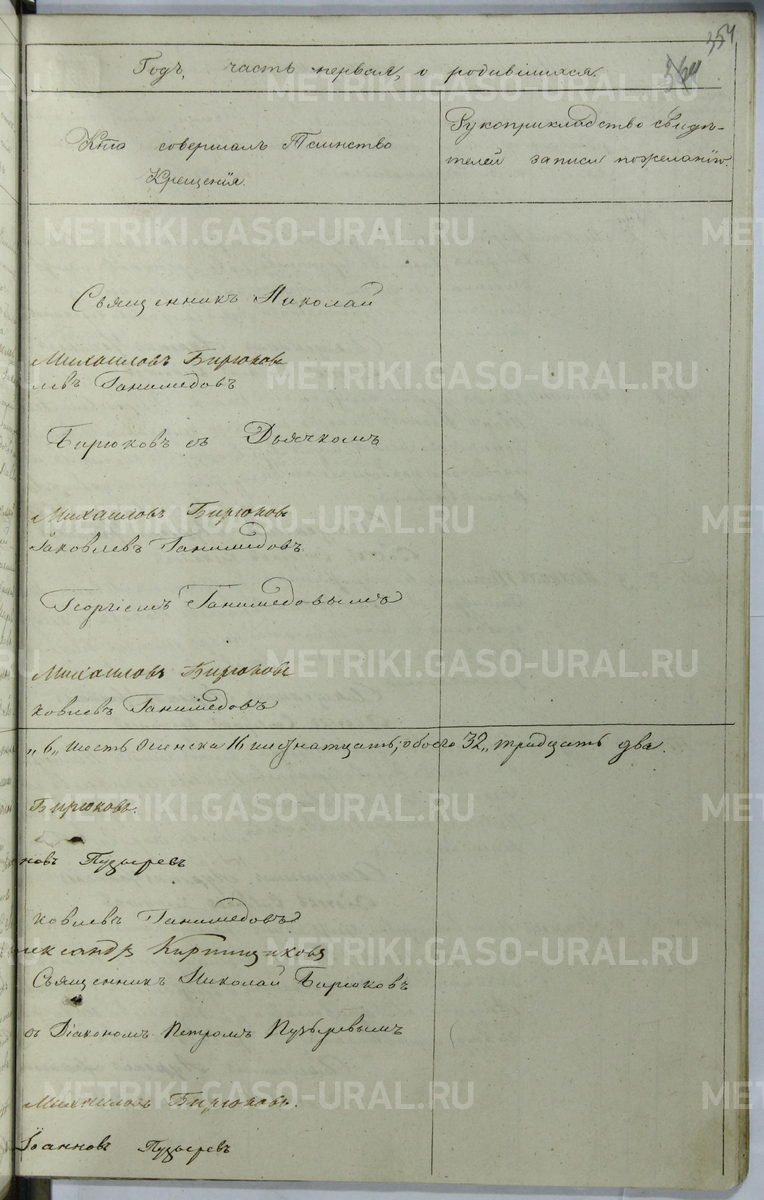 354
Годъ, часть первая, о родившихся.
Кто совершалъ Таинство
Крещенія.
Рукоприкладство свидѣ-
телей записи пожеланію.
METRIKI.GASO-URAL.RU
Священникъ Николай
Михаиловъ Бирюковъ
левъ Ганимедовъ
Бирюковъ съ Дьячкомъ
Михаиловъ Бирюковъ
Яковлевъ Ганимедовъ
Георгіемъ Ганимедовымъ
Михаиловъ Бирюковъ
ковлевъ Ганимедовъ
16 обоего 32, тридцать два.
Бирюковъ.
новъ Пузыревъ
ковлевъ Ганимедовъ
лександръ
Священникъ Николай Бирюковъ
съ Діакономъ Петромъ Пузыревымъ
Михаиловъ Бирюковъ.
Іоанновъ Пузыревъ